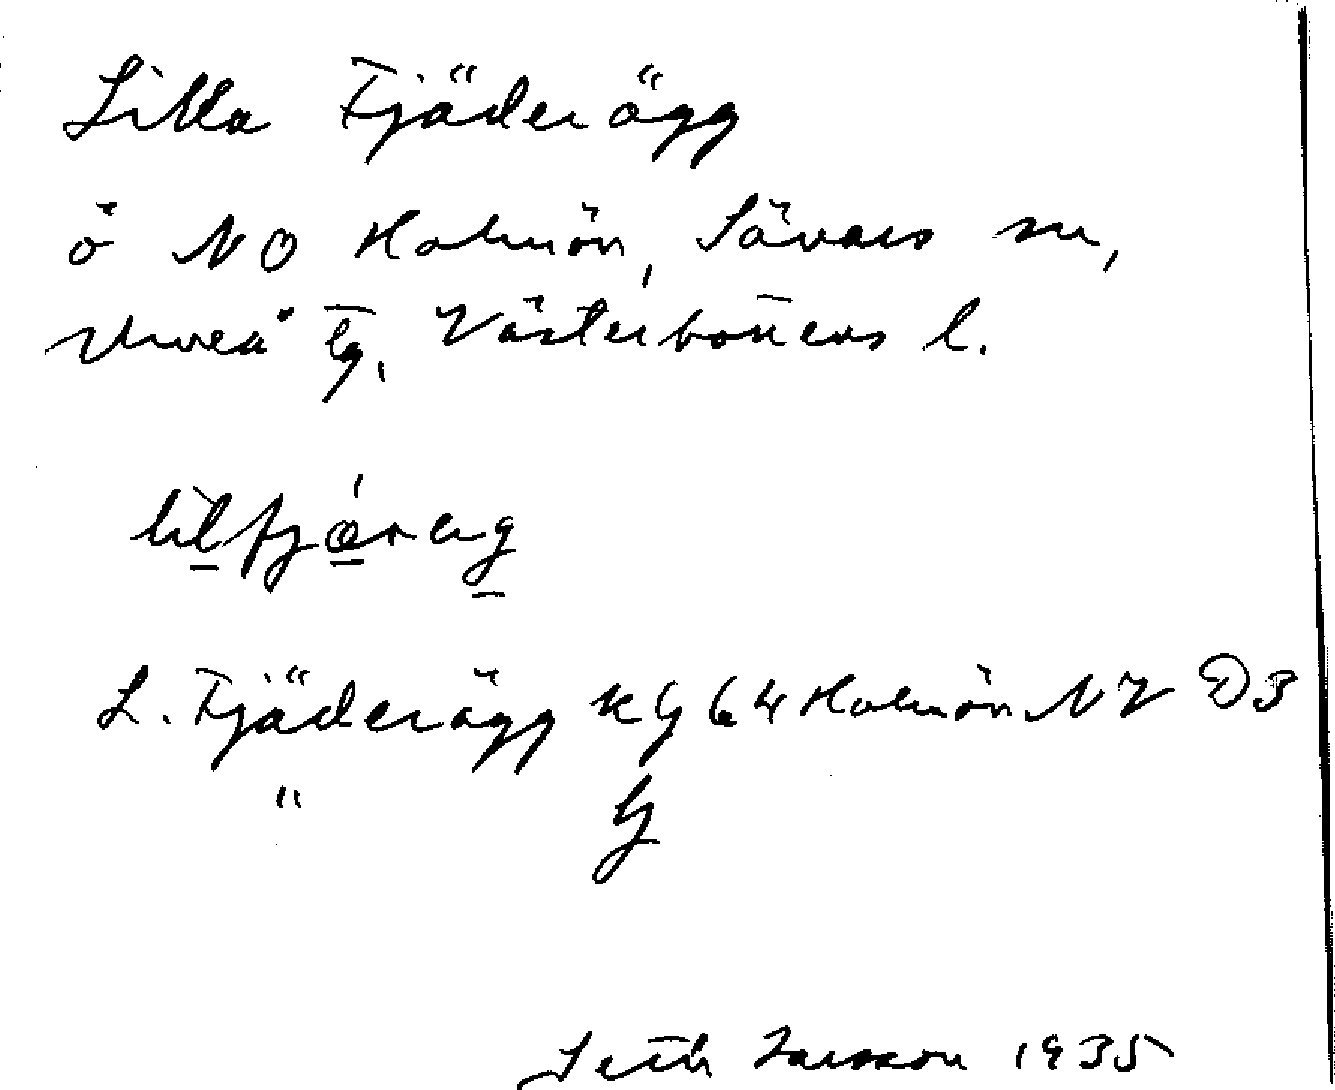 Lilla Fjäderägg
ö NO Holmön, Sävars sn,
Umeå tg, Västerbottens l.
lilfjæreg
L. Fjäderägg kg 64 Holmön NV D3
" G
Seth Larsson 1935